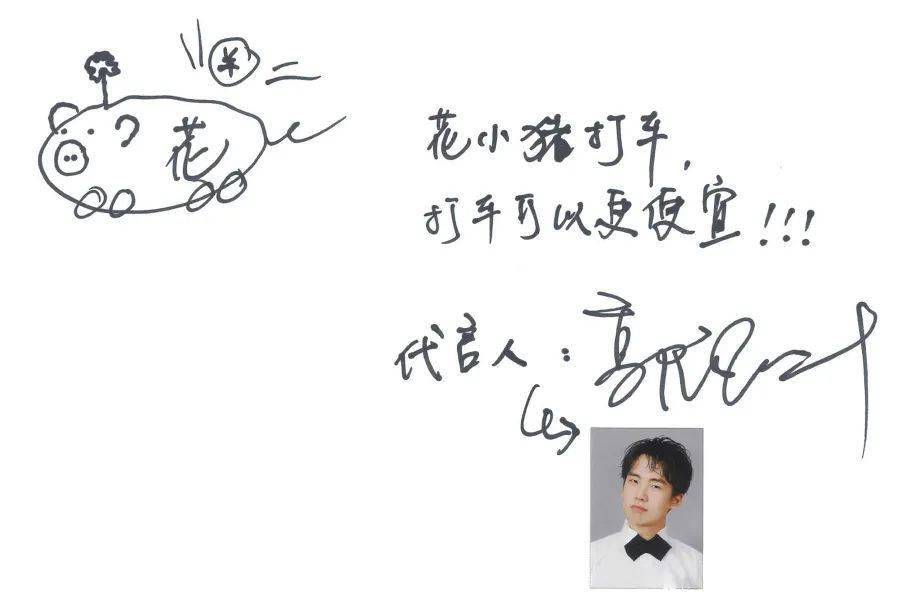 ¥
花
花小猪打车,
打车可以更便宜!!!
代言人: